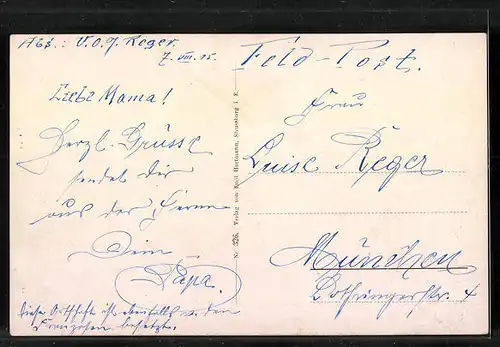 Abs.: V.O.J. Reger.
7. VIII. 15.
Liebe Mama!
Herzl. Grüsse
sendet Dir
aus der Ferne
Dein
Papa.
diese Ortschaft ist ebenfalls v. den
Franzosen besetzt.
Nr. 326. Verlag von Emil Hartmann, Strassburg i. E.
Feld-Post.
Frau
Luise Reger
München
Lothringerstr. 4